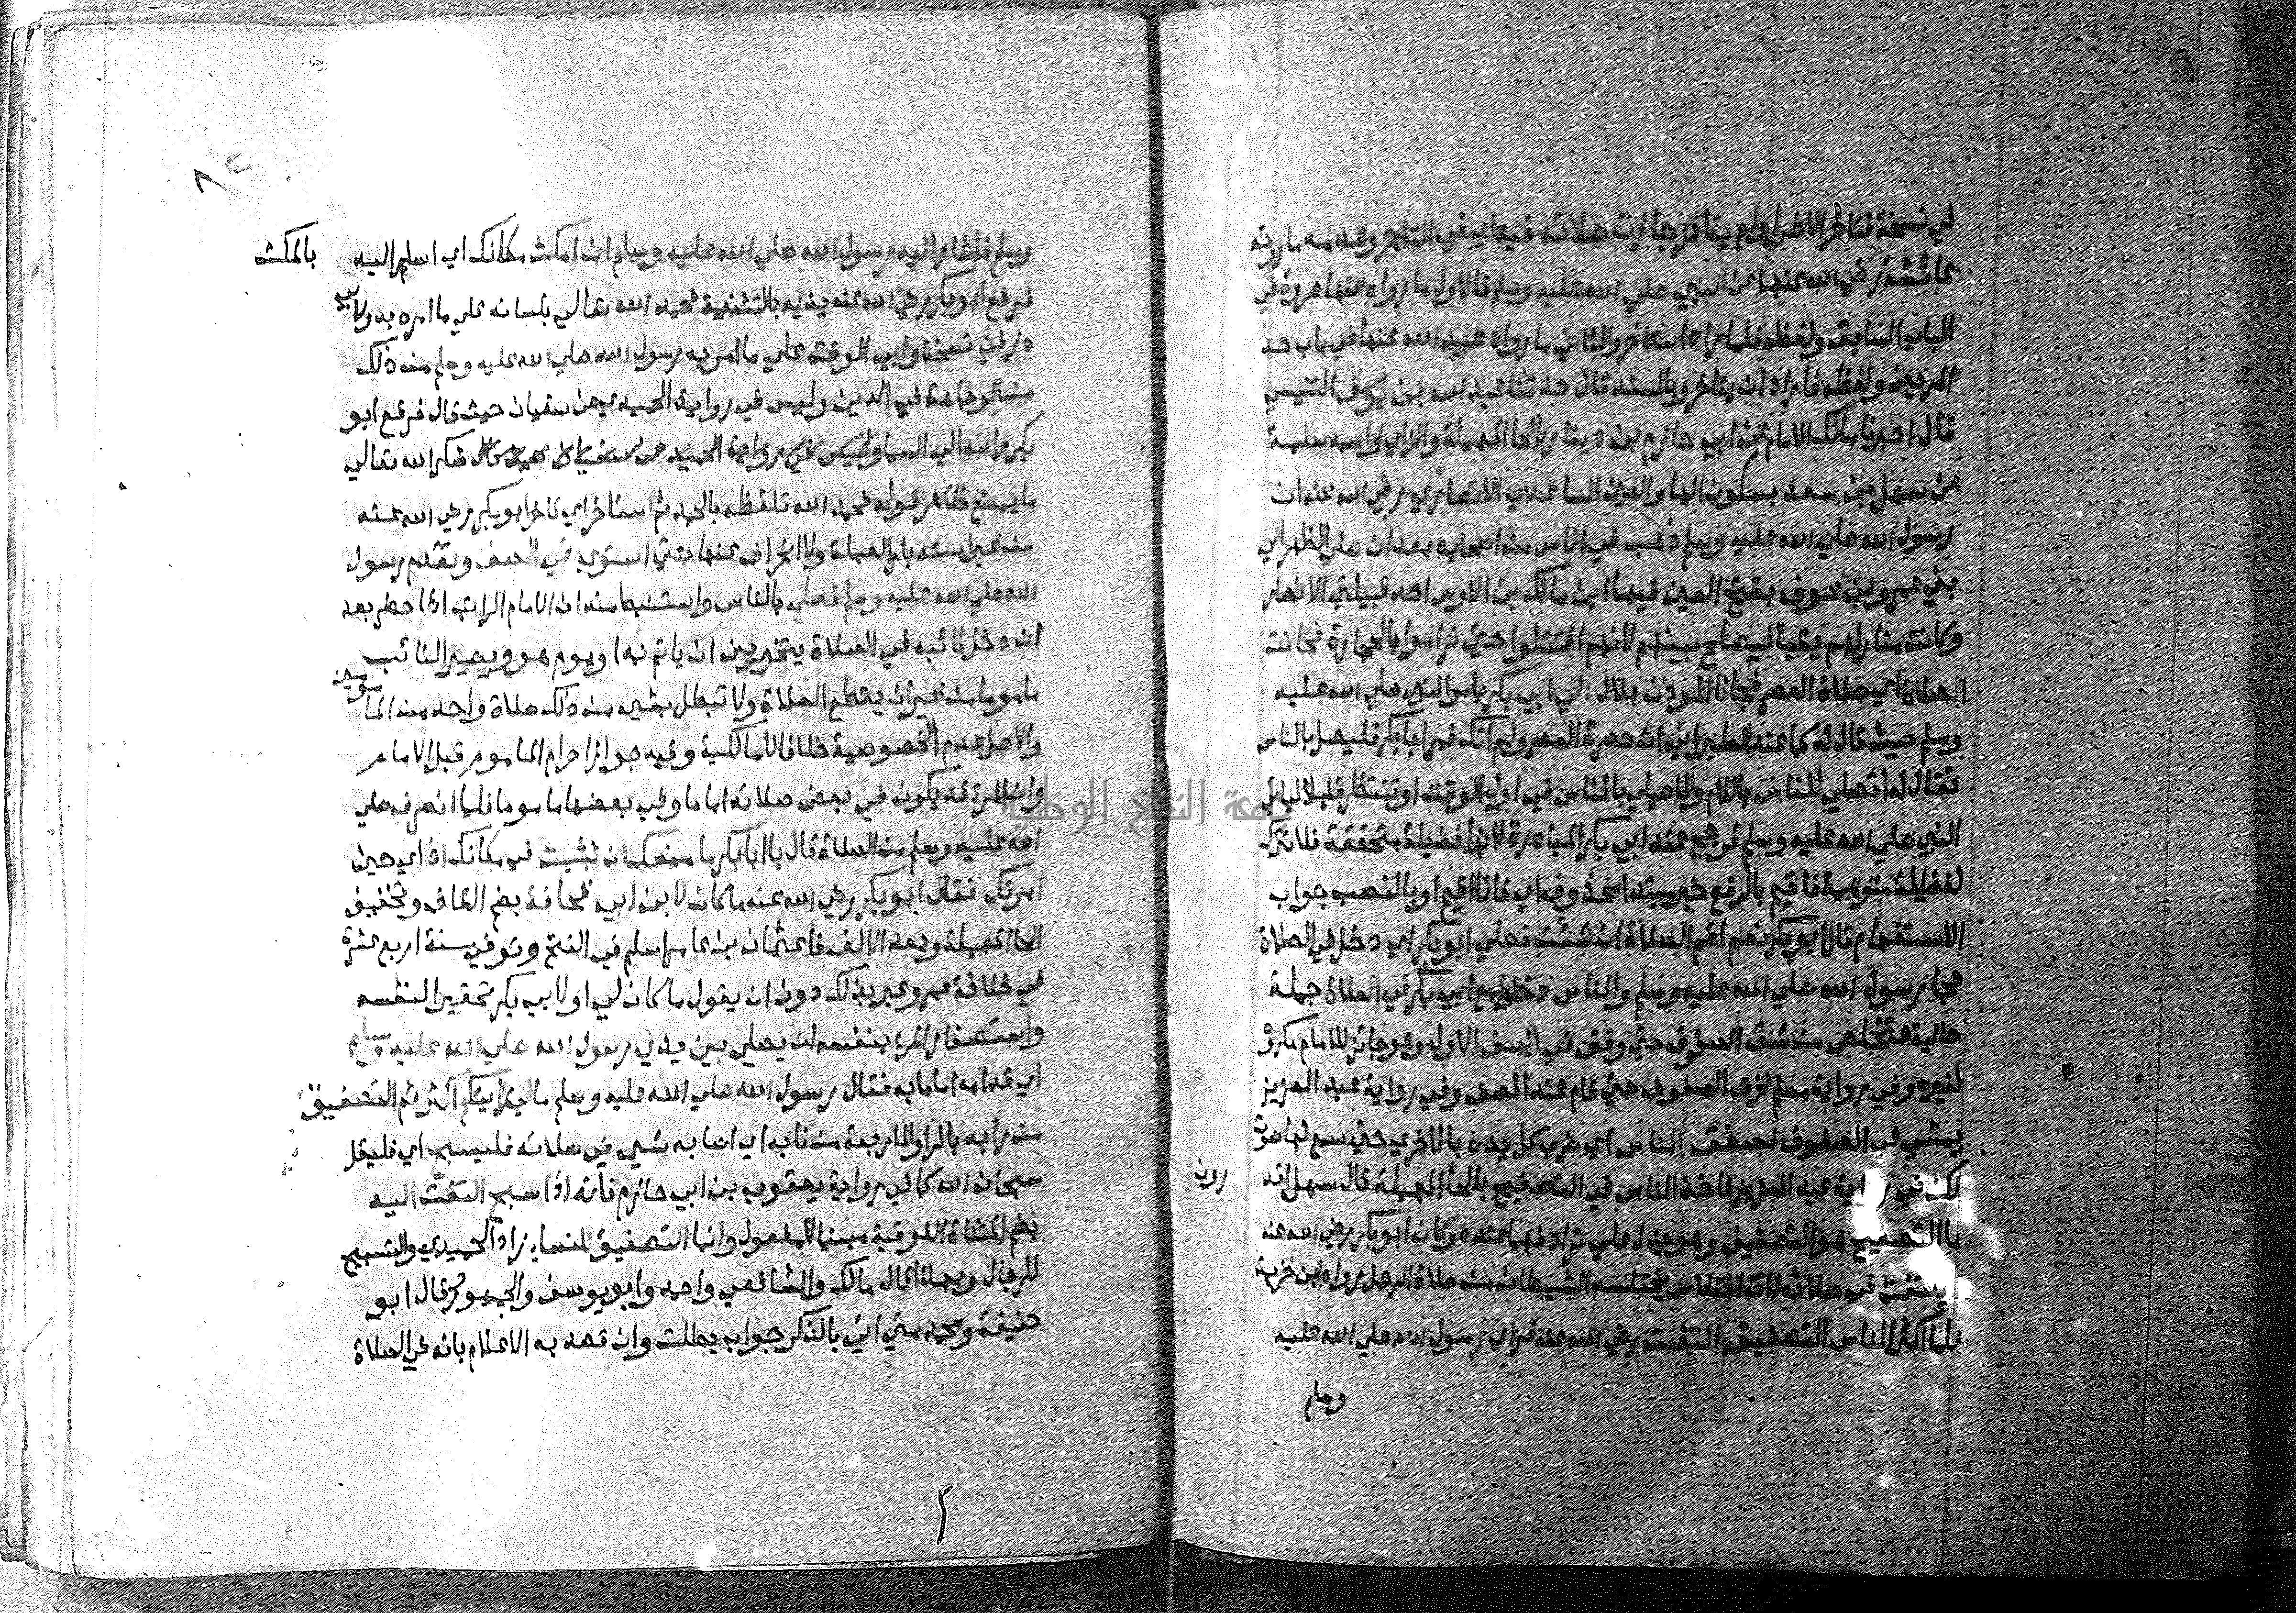 في نسخة فتاخر الاخر او لم يتاخر جازت صلاته فيه اي في التاخر وعدمه ما روته
عائشة رضي الله عنها عن النبي صلي الله عليه وسلم فالاول ما رواه عنها عروة في
الباب السابق ولفظه فلما راه استاخر والثاني ما رواه عبيد الله عنها في باب حد
المريض ولفظه فاراد ان يتاخر وبالسند قال حدثنا عبد الله بن يوسف التنيسي
قال اخبرنا مالك الامام عن ابي حازم بن دينار بالحا المهملة والزاي واسمه سلمة
عن سهل بن سعد بسكون الها والعين الساعدي الانصاري رضي الله عنه ان
رسول الله صلي الله عليه وسلم ذهب في اناس من اصحابه بعد ان صلي الظهر الي
بني عمرو بن عوف بفتح العين فيهما ابن مالك بن الاوس احد قبيلتي الانصار
وكانت منازلهم بقبا ليصلح بينهم لانهم اقتتلوا حتي تراموا بالحجارة فحانت
الصلاة اي صلاة العصر فجاء الموذن بلال الي ابي بكر بامر النبي صلي الله عليه
وسلم حيث قال له كما عند الطبراني ان حضرة العصر ولم اتك فمر ابا بكر فليصل بالناس
فقال له اتصلي للناس باللام وللاصيلي بالناس في اول الوقت او تنتظر قليلا لياتي
النبي صلي الله عليه وسلم فرجح عند ابي بكر المبادرة لانها فضيلة متحققة فلا تترك
لفضيلة متوهمة فاقيم بالرفع خبر مبتدا محذوف اي فانا اقيم او بالنصب جواب
الاستفهام قال ابو بكر نعم اقم الصلاة ان شئت فصلي ابو بكر اي دخل في الصلاة
فجا رسول الله صلي الله عليه وسلم والناس دخلوا مع ابي بكر في الصلاة جملة
حالية فتخلص من شق الصفوف حتي وقف في الصف الاول وهو جائز للامام مكروه
لغيره وفي رواية مسلم فخرق الصفوف حتي قام عند الصف وفي رواية عبد العزيز
يمشي في الصفوف فصفق الناس اي ضرب كل يده بالاخري حتي سمع لها صوت
لكن في رواية عبد العزيز فاخذ الناس في التصفيح بالحا المهملة قال سهل اتدرون
ما التصفيح هو التصفيق وهو يدل علي ترادفهما عنده وكان ابو بكر رضي الله عنه
لا يلتفت في صلاته لانه اختلاس يختلسه الشيطان من صلاة الرجل رواه ابن خزيمة
فلما اكثر الناس التصفيق التفت رضي الله عنه فراي رسول الله صلي الله عليه
وسلم
وسلم فاشار اليه رسول الله صلي الله عليه وسلم ان امكث مكانك اي اشار اليه بالمكث
فرفع ابو بكر رضي الله عنه يديه بالتثنية فحمد الله تعالي بلسانه علي ما امره به ولابي
ذر في نسخة وابي الوقت علي ما امر به رسول الله صلي الله عليه وسلم من ذلك
من الوجاهة في الدين وليس في رواية الحميدي عن سفيان حيث قال فرفع ابو
بكر راسه الي السما وليس في رواية الحميدي عن سفيان حيث قال شكر الله تعالي
ما يمنع ظاهر قوله فحمد الله تلفظه بالحمد ثم استاخر اي تاخر ابو بكر رضي الله عنه
من غير استدبار القبلة ولا انحراف عنها حتي استوي في الصف وتقدم رسول
الله صلي الله عليه وسلم فصلي بالناس واستنبط منه ان الامام الراتب اذا حضر بعد
ان دخل نائبه في الصلاة يتخير بين ان ياتم به او يوم هو ويصير النائب
ماموما من غير ان يقطع الصلاة ولا تبطل بشي من ذلك صلاة واحد من المامومين
والاصل عدم الخصوصية خلافا للمالكية وفيه جواز احرام الماموم قبل الامام
وان المرء قد يكون في بعض صلاته اماما وفي بعضها ماموما فلما انصرف صلي
الله عليه وسلم من الصلاة قال يا ابا بكر ما منعك ان تثبت في مكانك اذ اي حين
امرتك فقال ابو بكر رضي الله عنه ما كان لابن ابي قحافة بضم القاف وتخفيف
الحا المهملة وبعد الالف فا عثمان بن عامر اسلم في الفتح وتوفي سنة اربع عشرة
في خلافة عمر وعبر بذلك دون ان يقول ما كان لي او لابي بكر تحقيرا لنفسه
واستصغارا لمرتبته ان يصلي بين يدي رسول الله صلي الله عليه وسلم
اي قدامه اماما به فقال رسول الله صلي الله عليه وسلم مالي رايتكم اكثرتم التصفيق
من رابه بالرا وللاربعة من نابه اي اصابه شي في صلاته فليسبح اي فليقل
سبحان الله كما في رواية يعقوب بن ابي حازم فانه اذا سبح التفت اليه
بضم المثناة الفوقية مبنيا للمفعول وانما التصفيق للنسا زاد الحميدي والتسبيح
للرجال وبهذا قال مالك والشافعي واحمد وابو يوسف والجمهور وقال ابو
حنيفة ومحمد متي اتي بالذكر جوابا بطلت وان قصد به الاعلام بانه في الصلاة